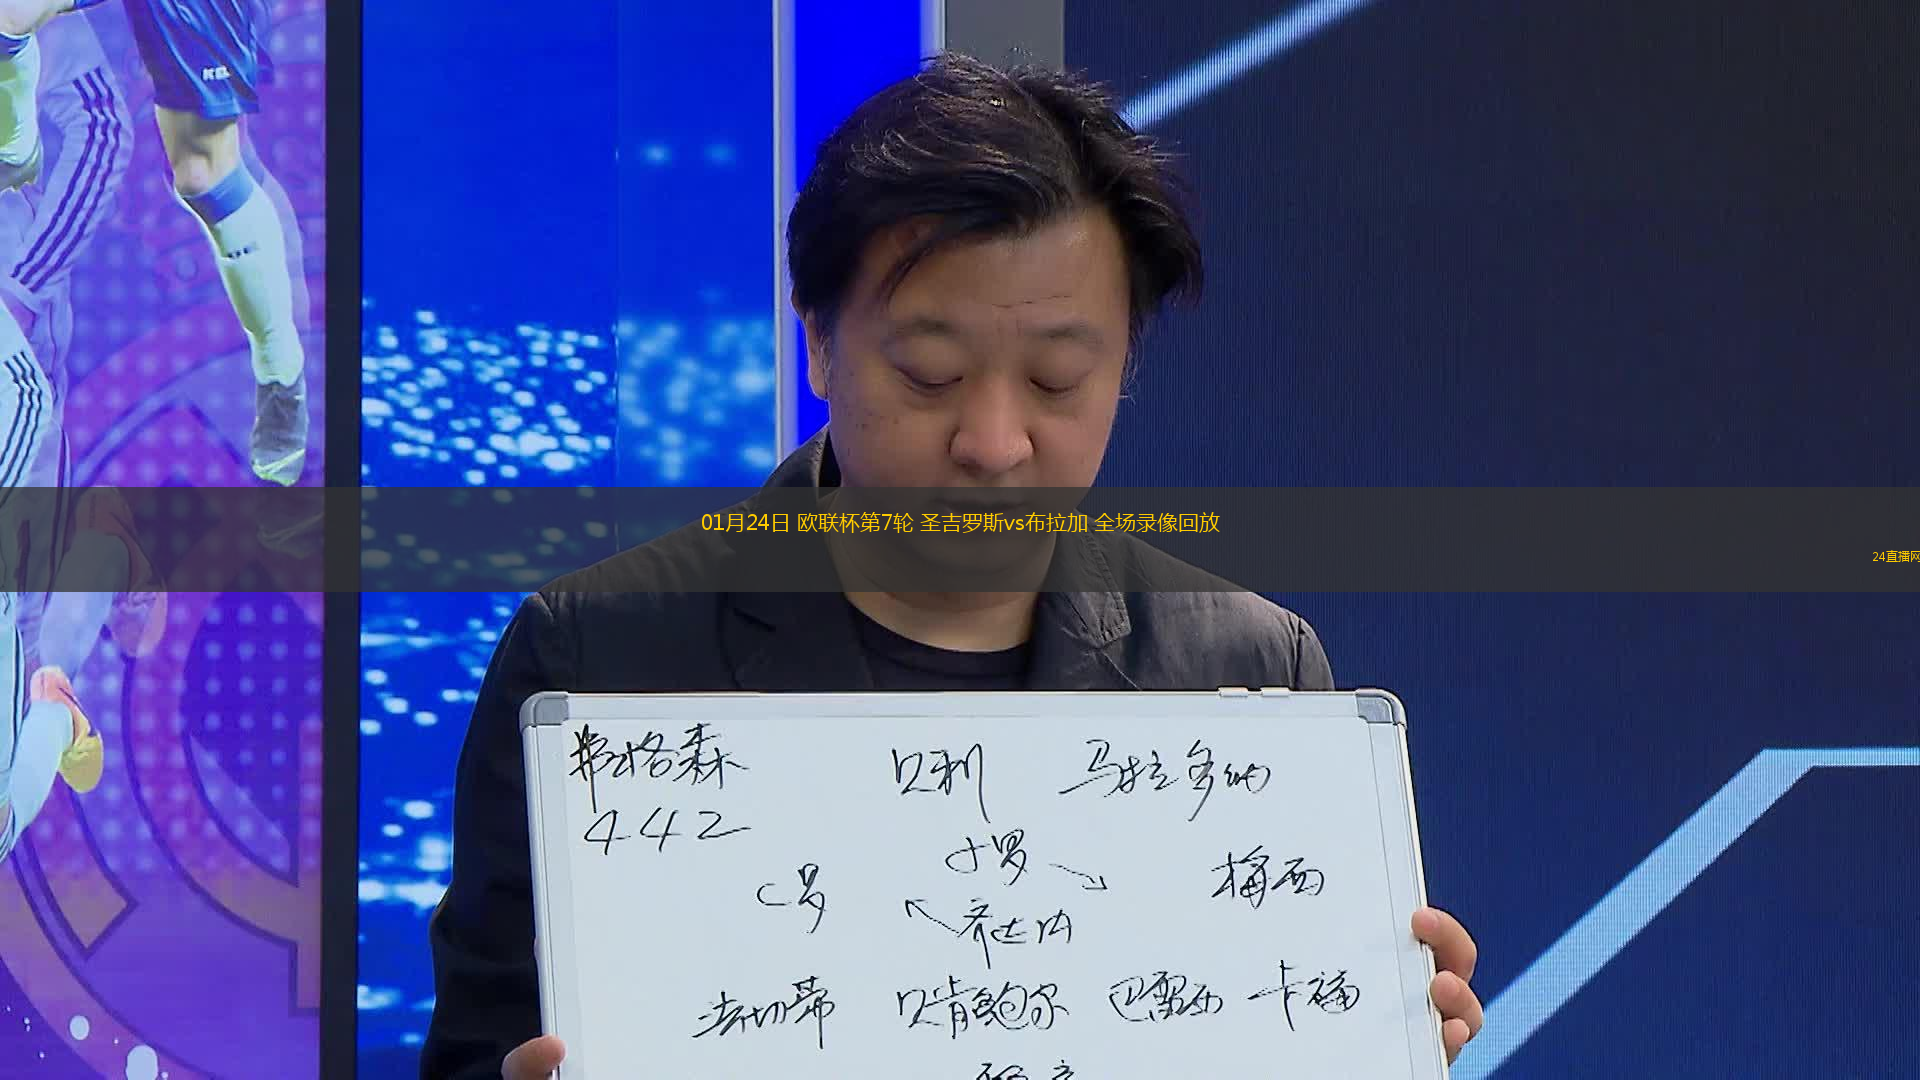 KEL
01月24日 欧联杯第7轮 圣吉罗斯vs布拉加 全场录像回放
24直播网
弗格森 贝利 马拉多纳
442
小罗
C罗 梅西
齐达内
法切蒂 贝肯鲍尔 巴雷西 卡福